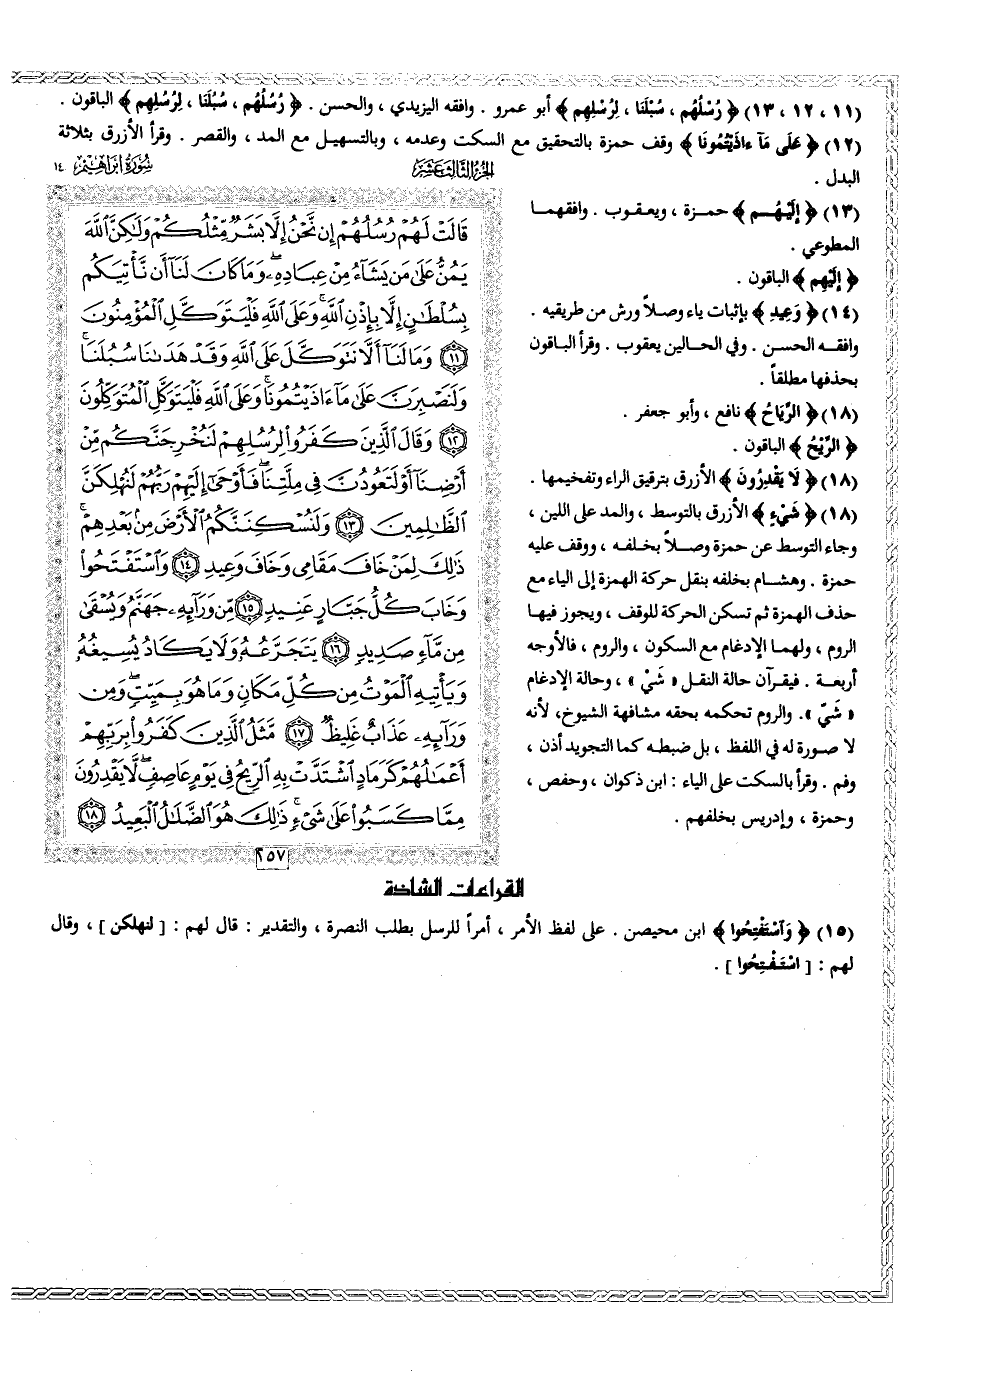 (١١ ، ١٢ ، ١٣) ﴿ رُسْلُهُم ، سُبْلَنَا ، لِرُسْلِهِم ﴾ أبو عمرو . وافقه اليزيدي ، والحسن . ﴿ رُسُلُهُم ، سُبُلَنَا ، لِرُسُلِهِم ﴾ الباقون .
(١٢) ﴿ عَلَى مَآ ءاذَيْتُمُونَا ﴾ وقف حمزة بالتحقيق مع السكت وعدمه ، وبالتسهيل مع المد ، والقصر . وقرأ الأزرق بثلاثة
البدل .
(١٣) ﴿ إِلَيْهُـم ﴾ حمزة ، ويعقـوب . وافقهمـا
المطوعي .
﴿ إِلَيْهِم ﴾ الباقون .
(١٤) ﴿ وَعِيدِ ﴾ بإثبات ياء وصلاً ورش من طريقيه .
وافقـه الحسـن . وفي الحـالين يعقوب . وقرأ الباقون
بحذفها مطلقاً .
(١٨) ﴿ الرِّيَاحُ ﴾ نافع ، وأبو جعفر .
﴿ الرِّيْحُ ﴾ الباقون .
(١٨) ﴿ لَا يَقْدِرُونَ ﴾ الأزرق بترقيق الراء وتفخيمها .
(١٨) ﴿ شَيْءٍ ﴾ الأزرق بالتوسط ، والمد على اللين ،
وجاء التوسط عن حمزة وصـلاً بخلفـه ، ووقف عليه
حمزة . وهشـام بخلفه بنقل حركة الهمزة إلى الياء مع
حذف الهمزة ثم تسكن الحركة للوقف ، ويجوز فيهـا
الروم ، ولهمـا الإدغام مع السكون ، والروم ، فالأوجه
أربعـة . فيقـرآن حالة النقـل « شَيْ » ، وحالة الإدغام
« شَيّ ». والروم تحكمه بحقه مشافهة الشيوخ، لأنه
لا صـورة له في اللفظ ، بل ضبطـه كما التجويد أذن ،
وفم . وقرأ بالسكت على الياء : ابن ذكوان ، وحفص ،
وحمزة ، وإدريس بخلفهم .
سُورَةُ إبْرَاهِيمَ ١٤
الجُزءُ الثَّالِثَ عَشَرَ
قَالَتْ لَهُمْ رُسُلُهُمْ إِن نَّحْنُ إِلَّا بَشَرٌ مِّثْلُكُمْ وَلَٰكِنَّ ٱللَّهَ
يَمُنُّ عَلَىٰ مَن يَشَآءُ مِنْ عِبَادِهِۦۖ وَمَا كَانَ لَنَآ أَن نَّأْتِيَكُم
بِسُلْطَٰنٍ إِلَّا بِإِذْنِ ٱللَّهِۚ وَعَلَى ٱللَّهِ فَلْيَتَوَكَّلِ ٱلْمُؤْمِنُونَ
١١ وَمَا لَنَآ أَلَّا نَتَوَكَّلَ عَلَى ٱللَّهِ وَقَدْ هَدَىٰنَا سُبُلَنَاۚ
وَلَنَصْبِرَنَّ عَلَىٰ مَآ ءَاذَيْتُمُونَاۚ وَعَلَى ٱللَّهِ فَلْيَتَوَكَّلِ ٱلْمُتَوَكِّلُونَ
١٢ وَقَالَ ٱلَّذِينَ كَفَرُوا۟ لِرُسُلِهِمْ لَنُخْرِجَنَّكُم مِّنْ
أَرْضِنَآ أَوْ لَتَعُودُنَّ فِى مِلَّتِنَاۖ فَأَوْحَىٰٓ إِلَيْهِمْ رَبُّهُمْ لَنُهْلِكَنَّ
ٱلظَّٰلِمِينَ ١٣ وَلَنُسْكِنَنَّكُمُ ٱلْأَرْضَ مِنۢ بَعْدِهِمْۚ
ذَٰلِكَ لِمَنْ خَافَ مَقَامِى وَخَافَ وَعِيدِ ١٤ وَٱسْتَفْتَحُوا۟
وَخَابَ كُلُّ جَبَّارٍ عَنِيدٍ ١٥ مِّن وَرَآئِهِۦ جَهَنَّمُ وَيُسْقَىٰ
مِن مَّآءٍ صَدِيدٍ ١٦ يَتَجَرَّعُهُۥ وَلَا يَكَادُ يُسِيغُهُۥ
وَيَأْتِيهِ ٱلْمَوْتُ مِن كُلِّ مَكَانٍ وَمَا هُوَ بِمَيِّتٍۖ وَمِن
وَرَآئِهِۦ عَذَابٌ غَلِيظٌ ١٧ مَّثَلُ ٱلَّذِينَ كَفَرُوا۟ بِرَبِّهِمْۖ
أَعْمَٰلُهُمْ كَرَمَادٍ ٱشْتَدَّتْ بِهِ ٱلرِّيحُ فِى يَوْمٍ عَاصِفٍۖ لَّا يَقْدِرُونَ
مِمَّا كَسَبُوا۟ عَلَىٰ شَىْءٍۚ ذَٰلِكَ هُوَ ٱلضَّلَٰلُ ٱلْبَعِيدُ ١٨
٢٥٧
القراءات الشاذة
(١٥) ﴿ وَاسْتَفْتِحُوا ﴾ ابن محيصن . على لفظ الأمر ، أمراً للرسل بطلب النصرة ، والتقدير : قال لهم : [ لنهلكن ] ، وقال
لهم : [ اسْتَـفْتِحُوا ] .